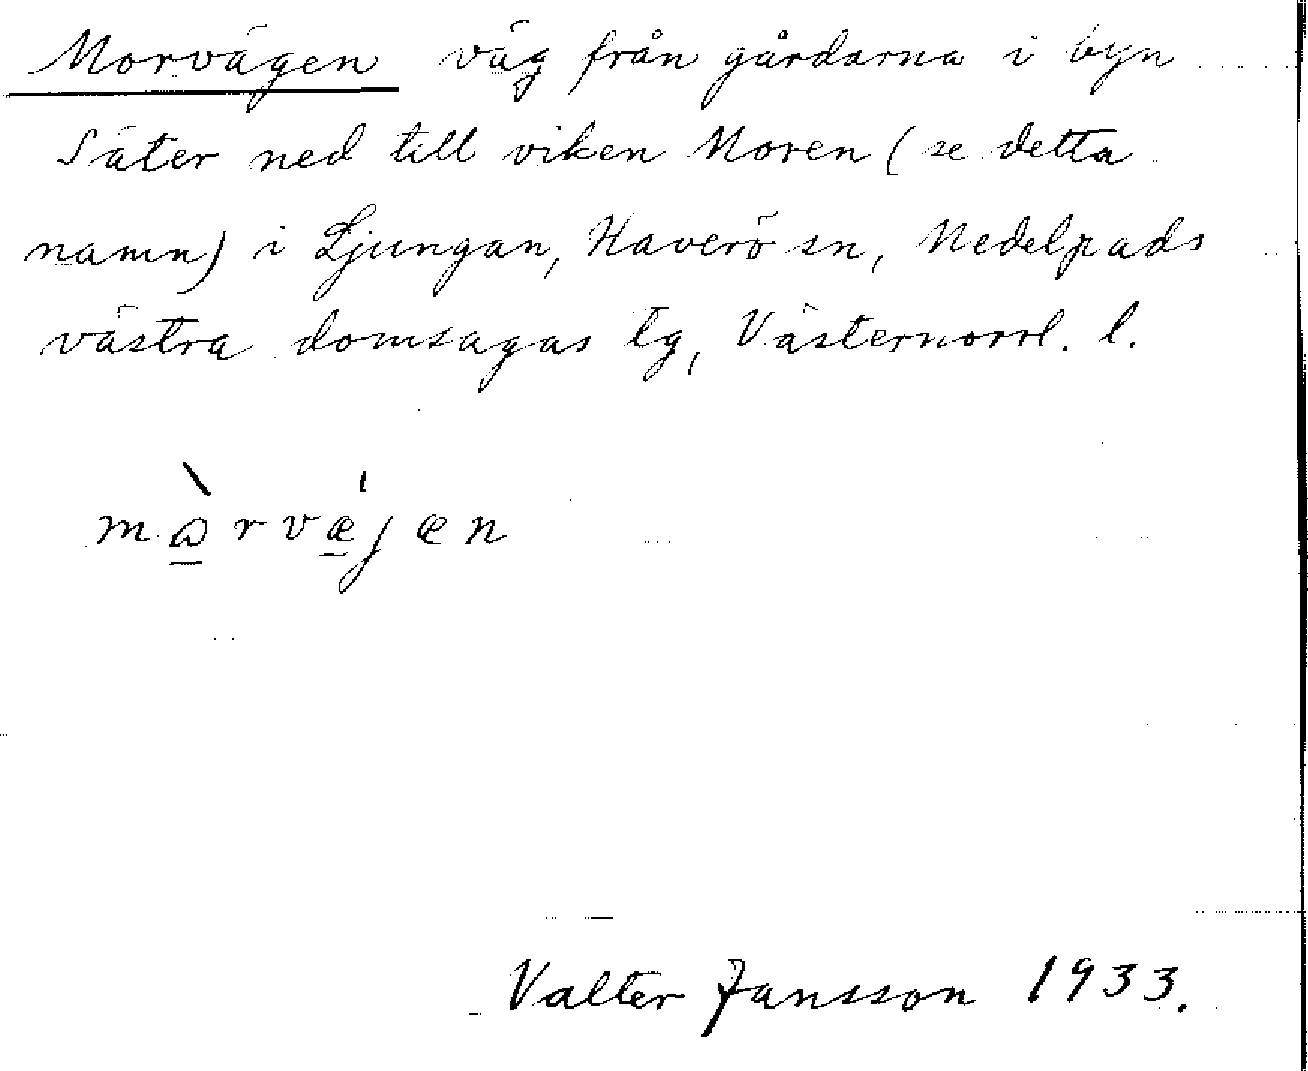 Morvägen väg från gårdarna i byn
Säter ned till viken Moren (se detta
namn) i Ljungan, Haverö sn, Medelpads
västra domsagas tg, Västernorrl. l.
Valter Jansson 1933.